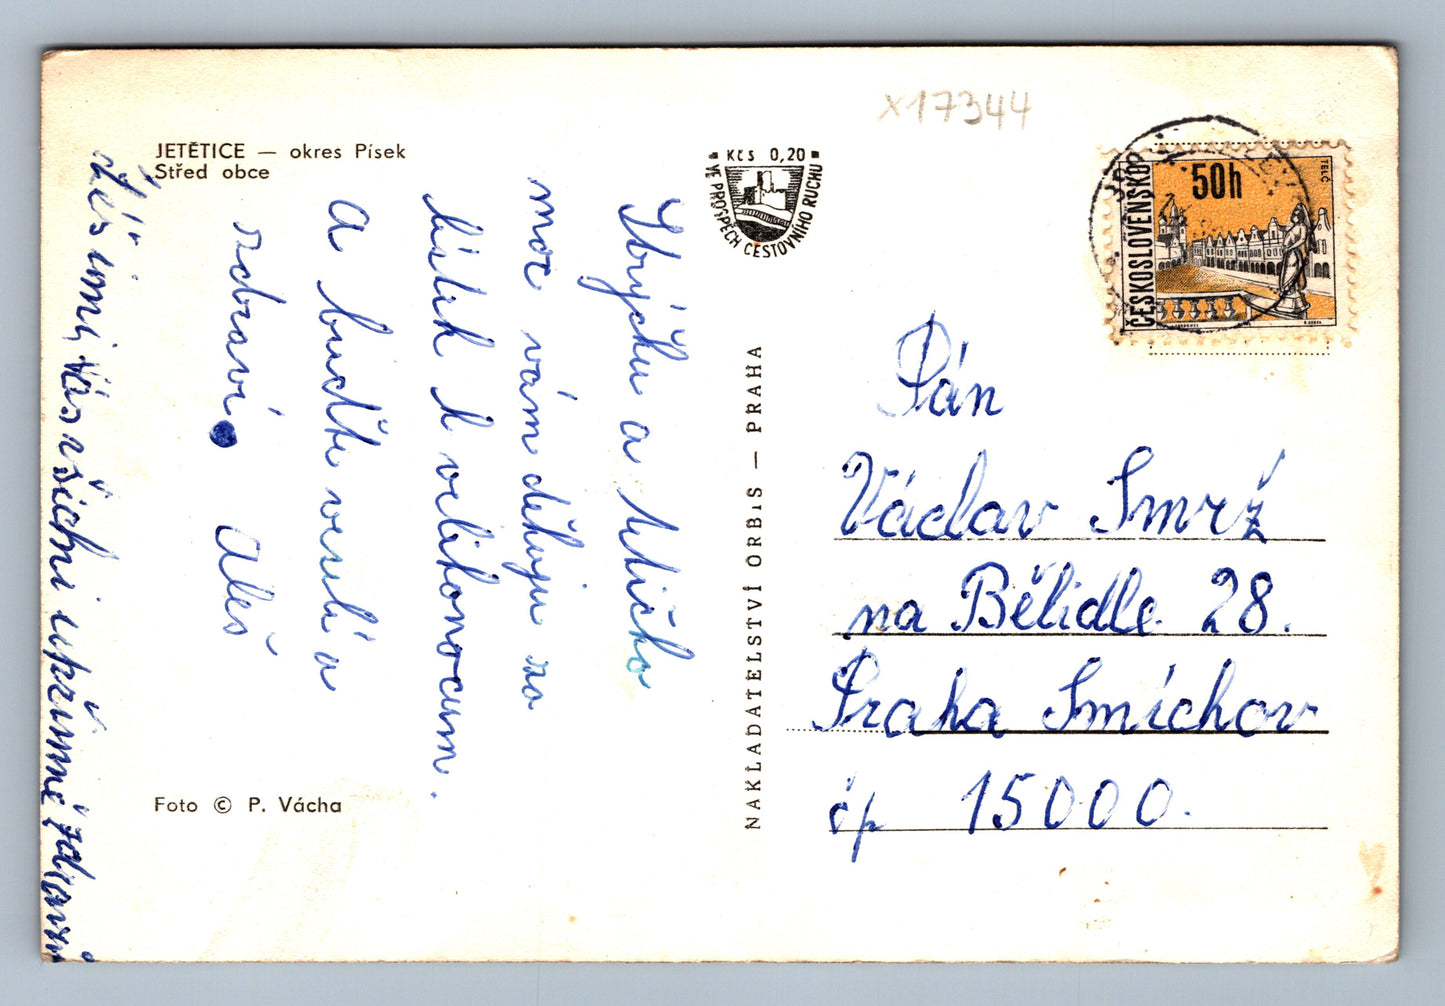 x17344
JETĚTICE — okres Písek
Střed obce
KČS 0,20
VE PROSPĚCH CESTOVNÍHO RUCHU
50h
TELČ
ČESKOSLOVENSKO
Strýčku a tetičko
moc vám děkuju za
lístek k velikonocum.
a buďte veselí a
zdraví.
Aleš
Těší mi, vás všichni upřímně zdraví
Foto © P. Vácha
NAKLADATELSTVÍ ORBIS — PRAHA
Pán
Václav Smrž
na Bělidle 28.
Praha Smíchov
čp 15000.